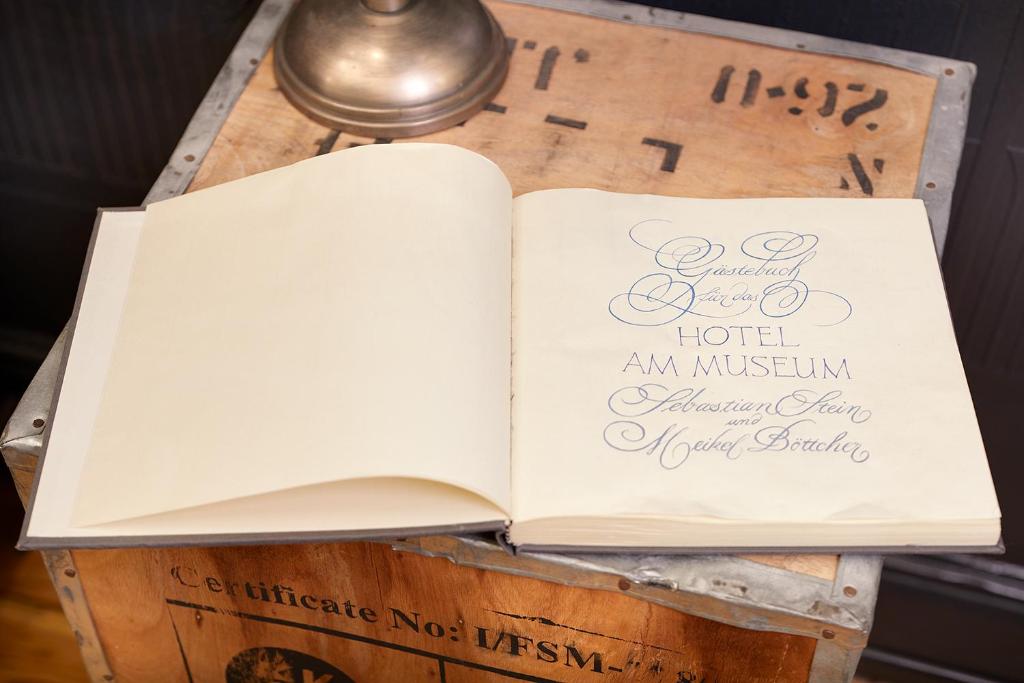 11-92
N
Gästebuch
für das
HOTEL
AM MUSEUM
Sebastian Stein
und
Meikel Böttcher
Certificate No: I/FSM-